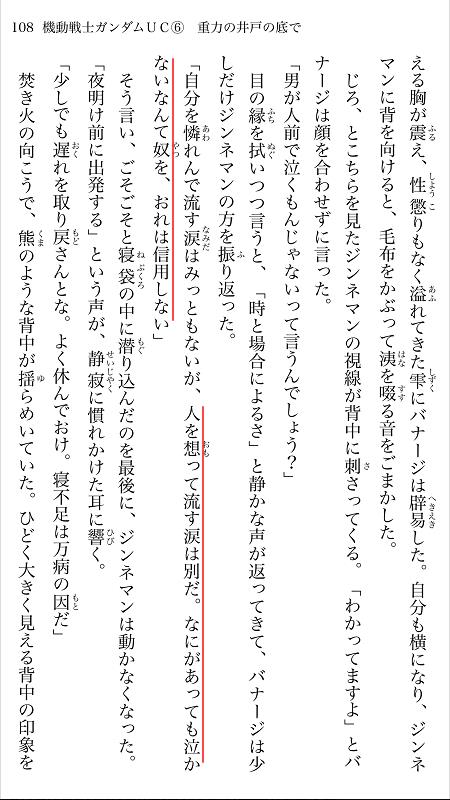 108 機動戦士ガンダムＵＣ⑥　重力の井戸の底で
える胸が震え、性懲りもなく溢れてきた雫にバナージは辟易した。自分も横になり、ジンネ
マンに背を向けると、毛布をかぶって洟を啜る音をごまかした。
じろ、とこちらを見たジンネマンの視線が背中に刺さってくる。「わかってますよ」とバ
ナージは顔を合わせずに言った。
「男が人前で泣くもんじゃないって言うんでしょう？」
目の縁を拭いつつ言うと、「時と場合によるさ」と静かな声が返ってきて、バナージは少
しだけジンネマンの方を振り返った。
「自分を憐れんで流す涙はみっともないが、人を想って流す涙は別だ。なにがあっても泣か
ないなんて奴を、おれは信用しない」
そう言い、ごそごそと寝袋の中に潜り込んだのを最後に、ジンネマンは動かなくなった。
「夜明け前に出発する」という声が、静寂に慣れかけた耳に響く。
「少しでも遅れを取り戻さんとな。よく休んでおけ。寝不足は万病の因だ」
焚き火の向こうで、熊のような背中が揺らめいていた。ひどく大きく見える背中の印象を